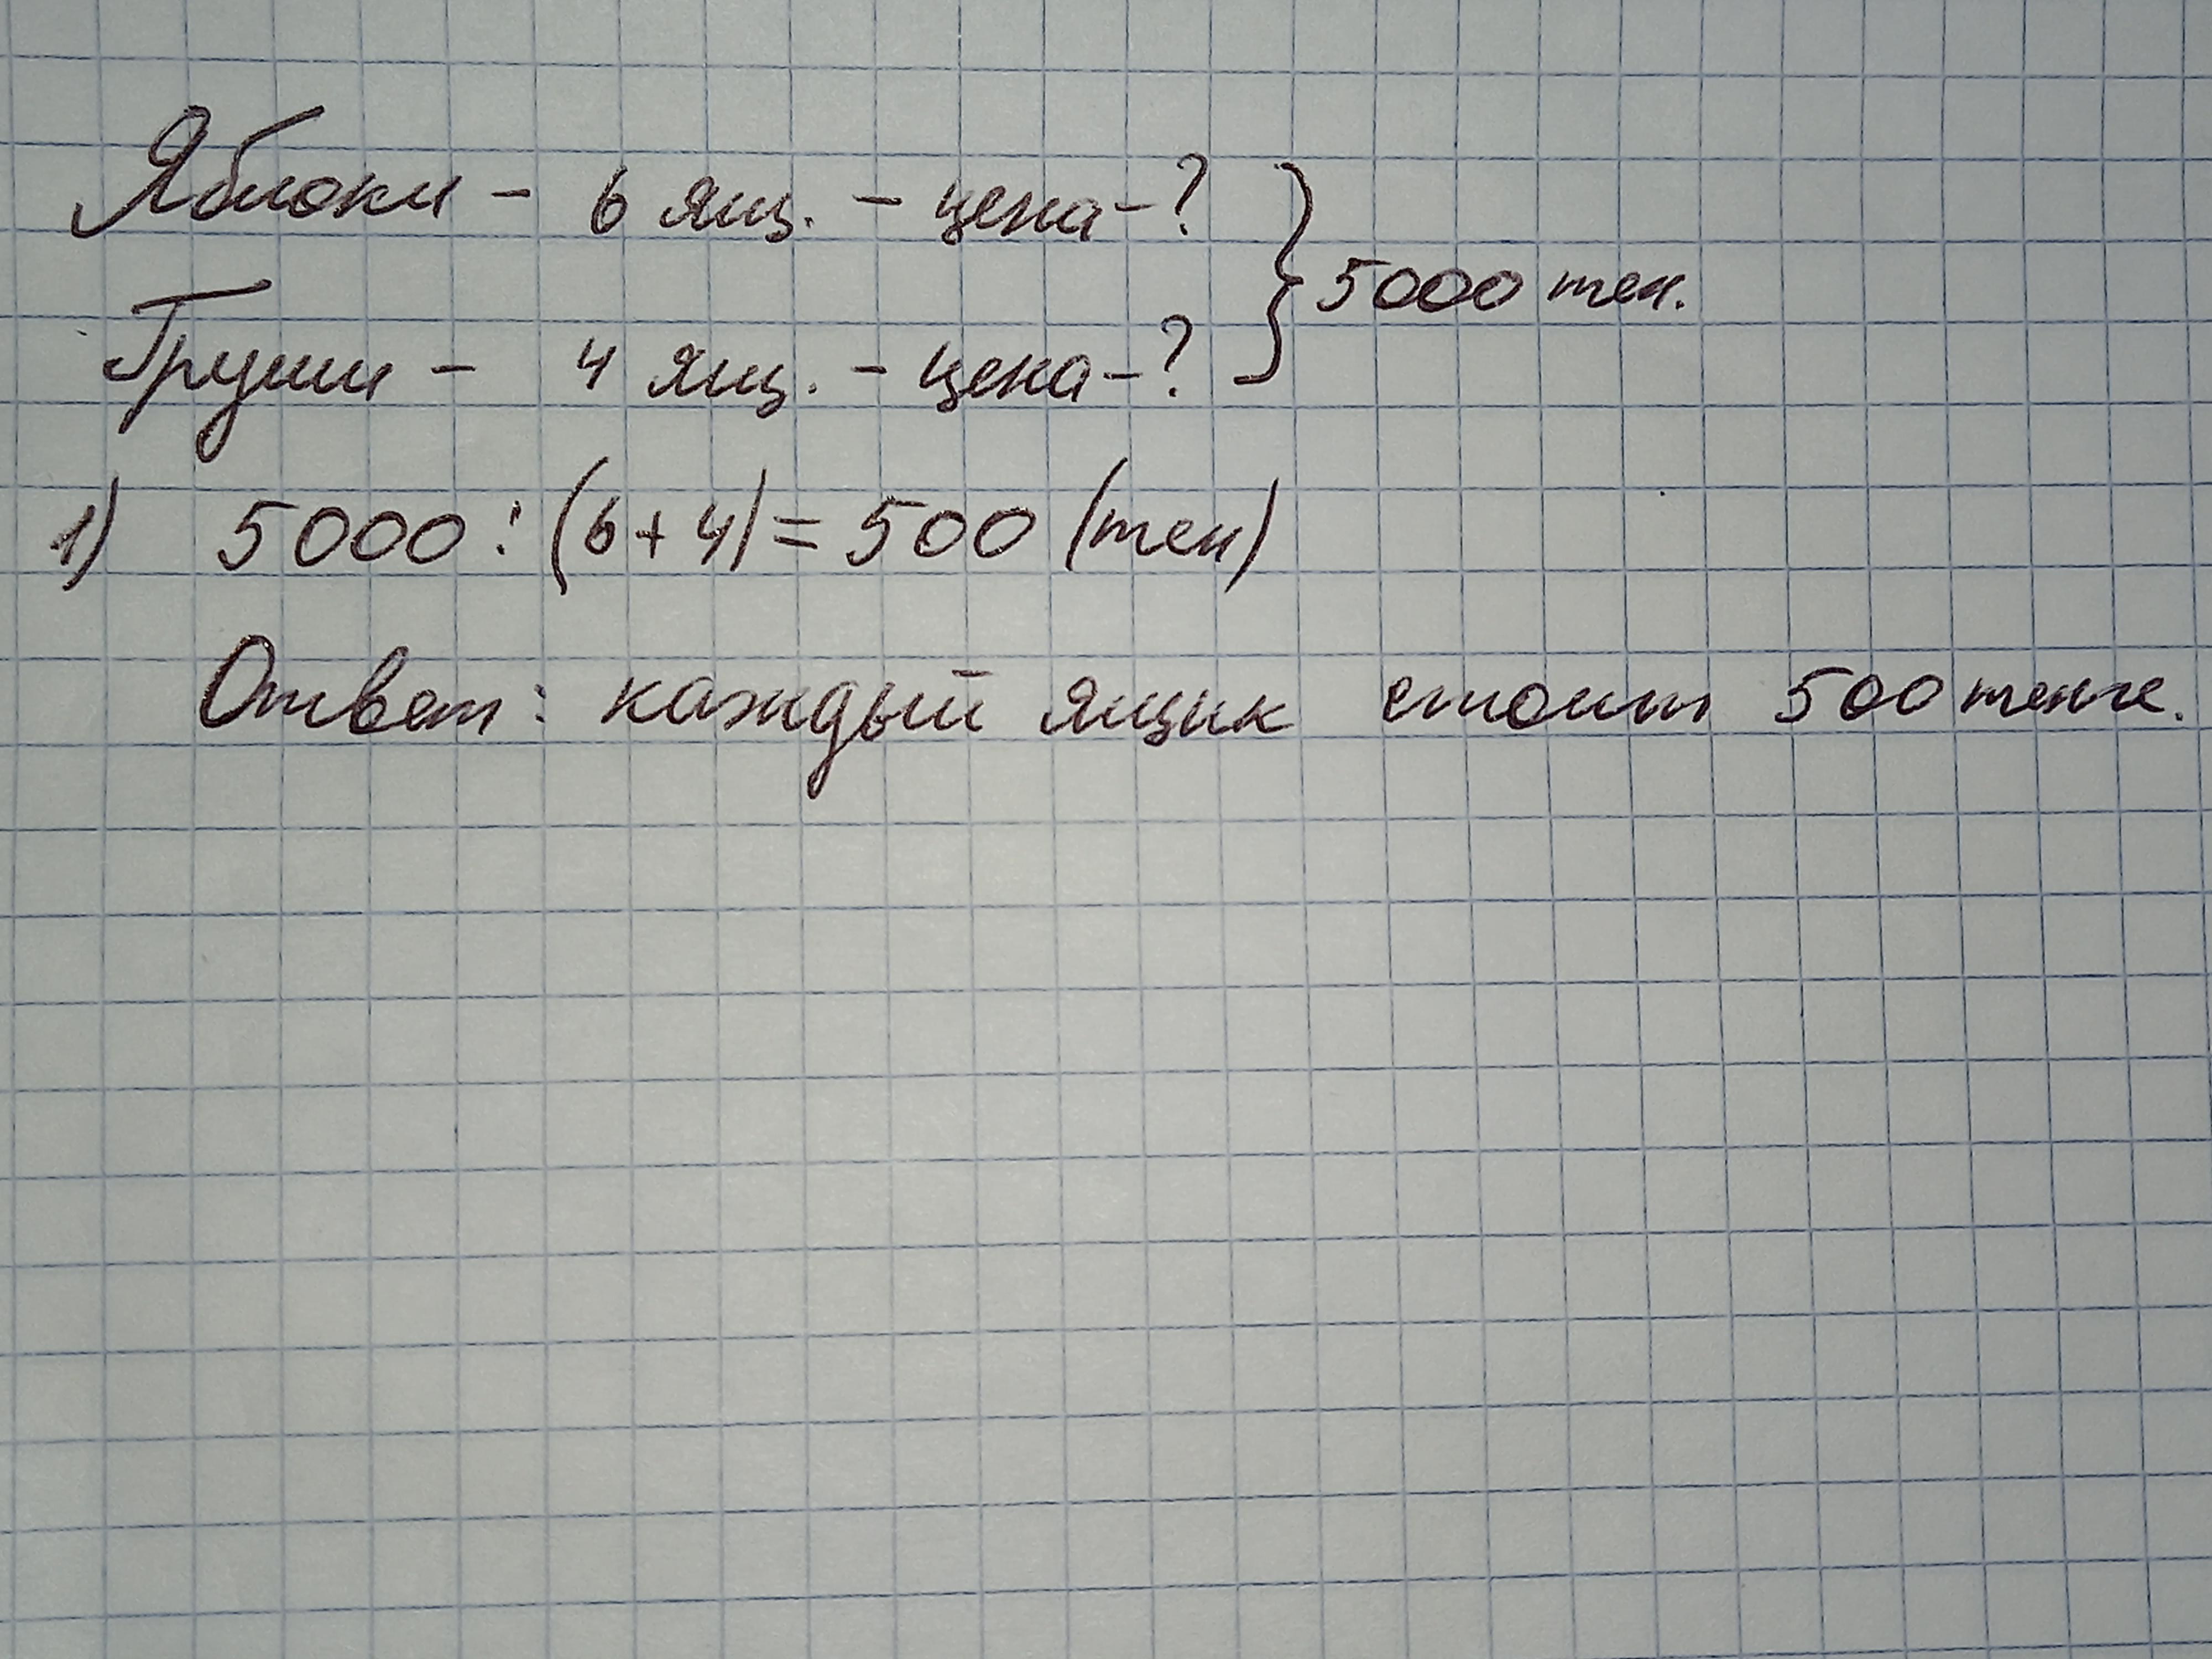 Яблоки - 6 ящ. - цена - ?
Груши - 4 ящ. - цена - ?
} 5000 тен.
1) 5000 : (6 + 4) = 500 (тен)
Ответ: каждый ящик стоит 500 тенге.